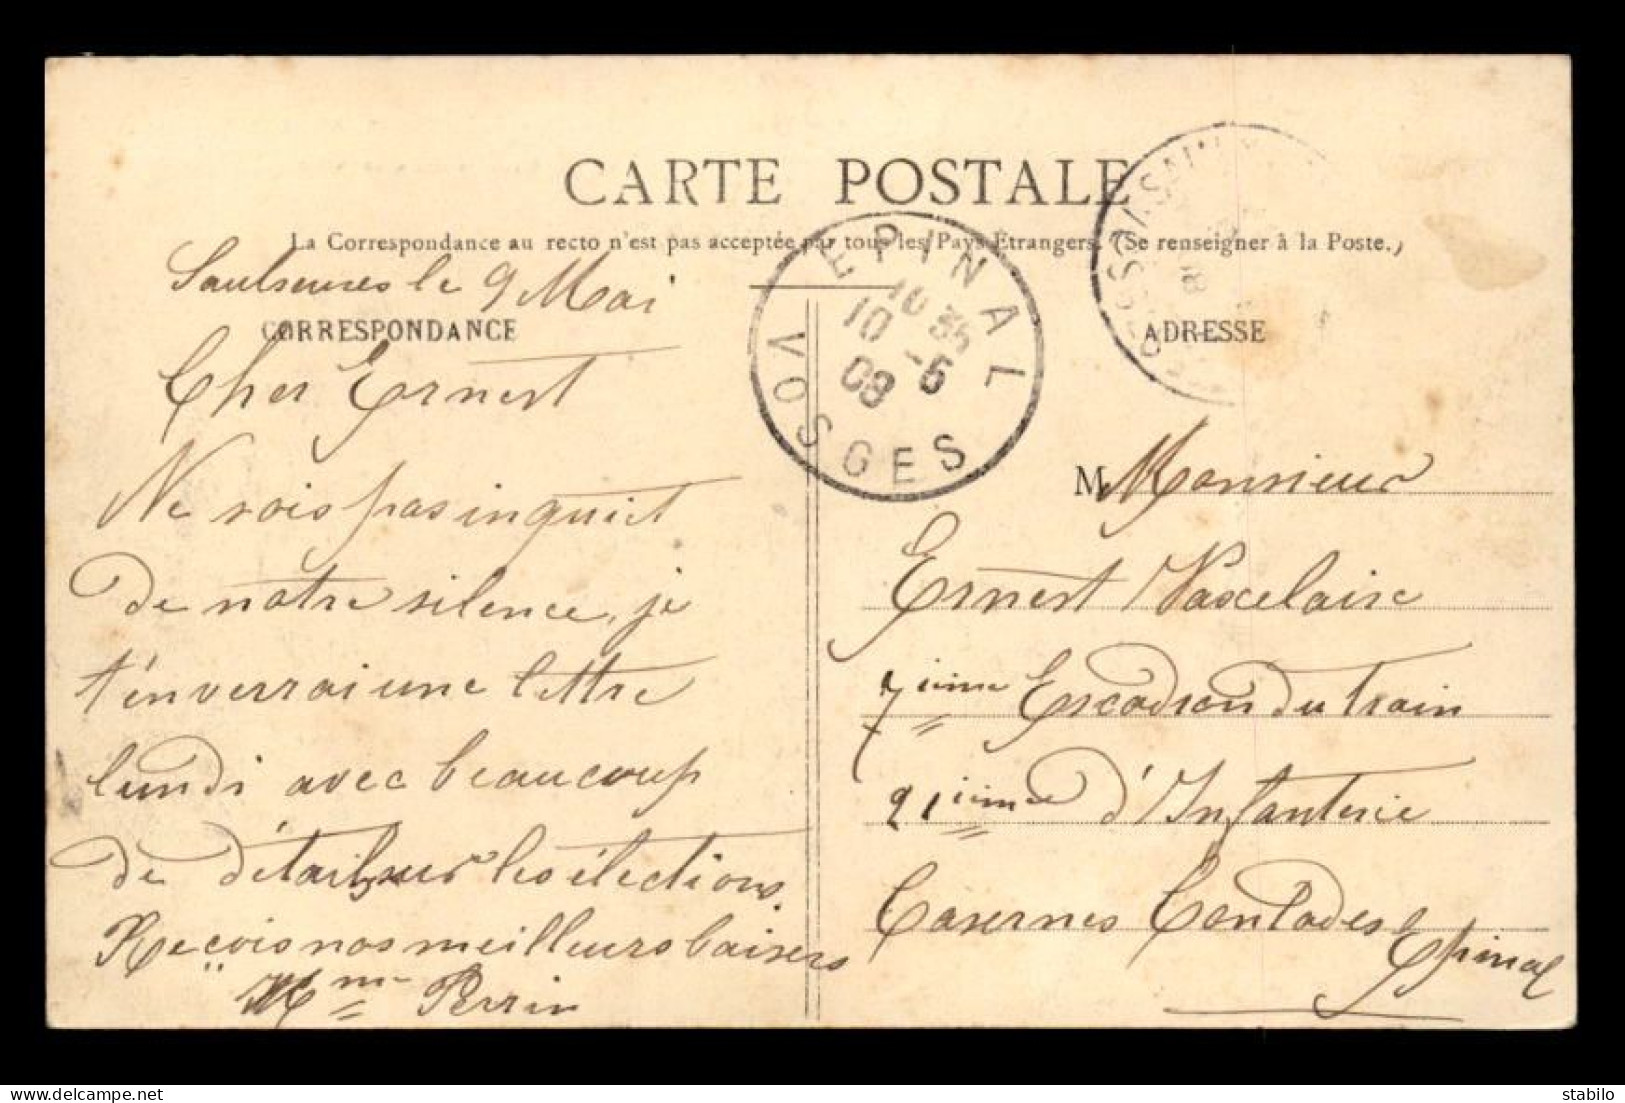 CARTE POSTALE
La Correspondance au recto n'est pas acceptée par tous les Pays Étrangers. (Se renseigner à la Poste.)
CORRESPONDANCE
Saulxures le 9 Mai
Cher Ernest
Ne sois pas inquiet
de notre silence, je
t'enverrai une lettre
lundi avec beaucoup
de détails sur les élections.
Reçois nos meilleurs baisers
Mme Perrin
EPINAL
10 35
10 -5
08
VOSGES
ADRESSE
M Monsieur
Ernest Vaxelaire
7ième Escadron du train
21ième d'Infanterie
Casernes Contades Epinal
stabilo
www.delcampe.net